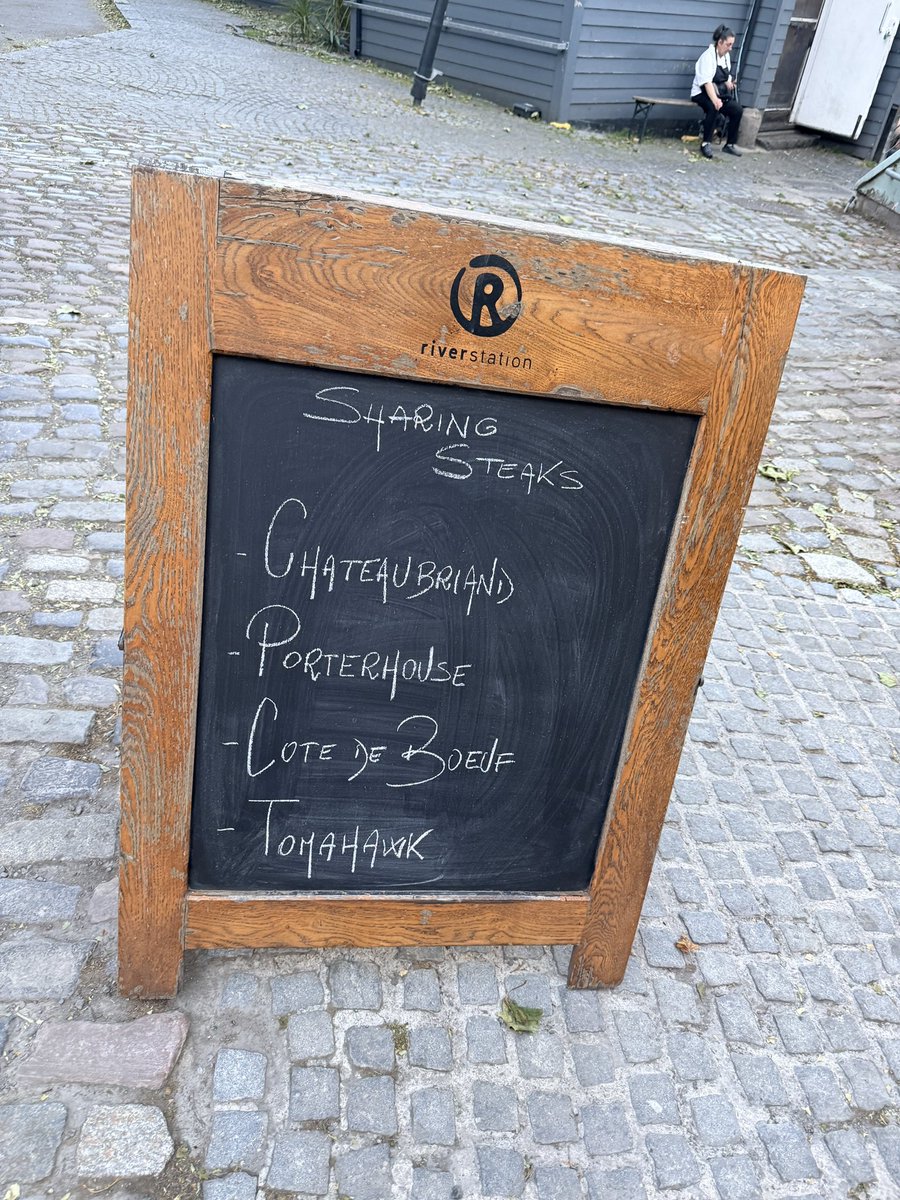 R
riverstation
SHARING
STEAKS
- CHATEAUBRIAND
- PORTERHOUSE
- COTE DE BOEUF
- TOMAHAWK